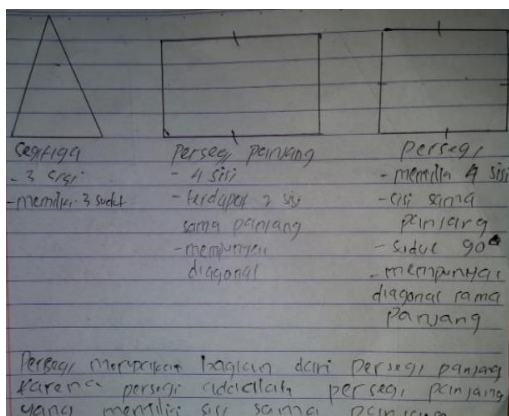 segitiga
- 3 sisi
- memiliki 3 sudut
persegi panjang
- 4 sisi
- terdapat 2 sisi
sama panjang
- mempunyai
diagonal
persegi
- memiliki 4 sisi
- sisi sama
panjang
- sudut 90°
- mempunyai
diagonal sama
panjang
Persegi merupakan bagian dari persegi panjang
karena persegi adalah persegi panjang
yang memiliki sisi sama panjang